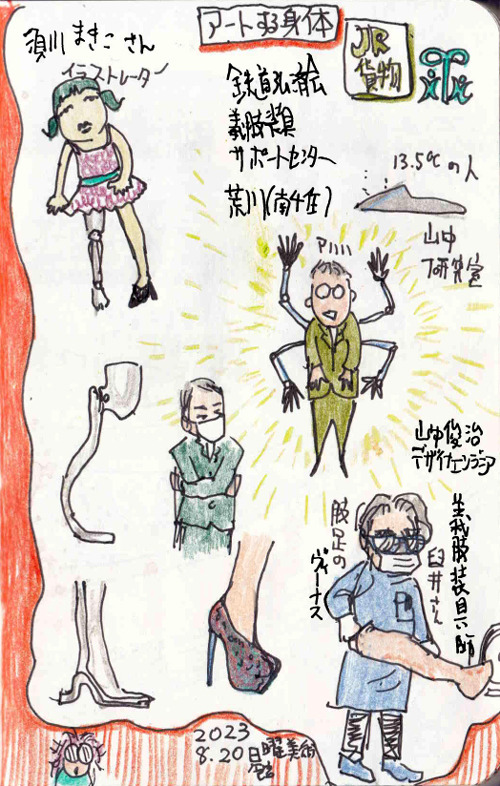 アートする身体
須川まきこさん
イラストレーター
JR
貨物
鉄道弘済会
義肢装具
サポートセンター
荒川(南千住)
13.5℃の人
山中
研究室
山中俊治
デザインエンジニア
義肢装具士
臼井さん
肢足の
ヴィーナス
2023
8.20日曜美術